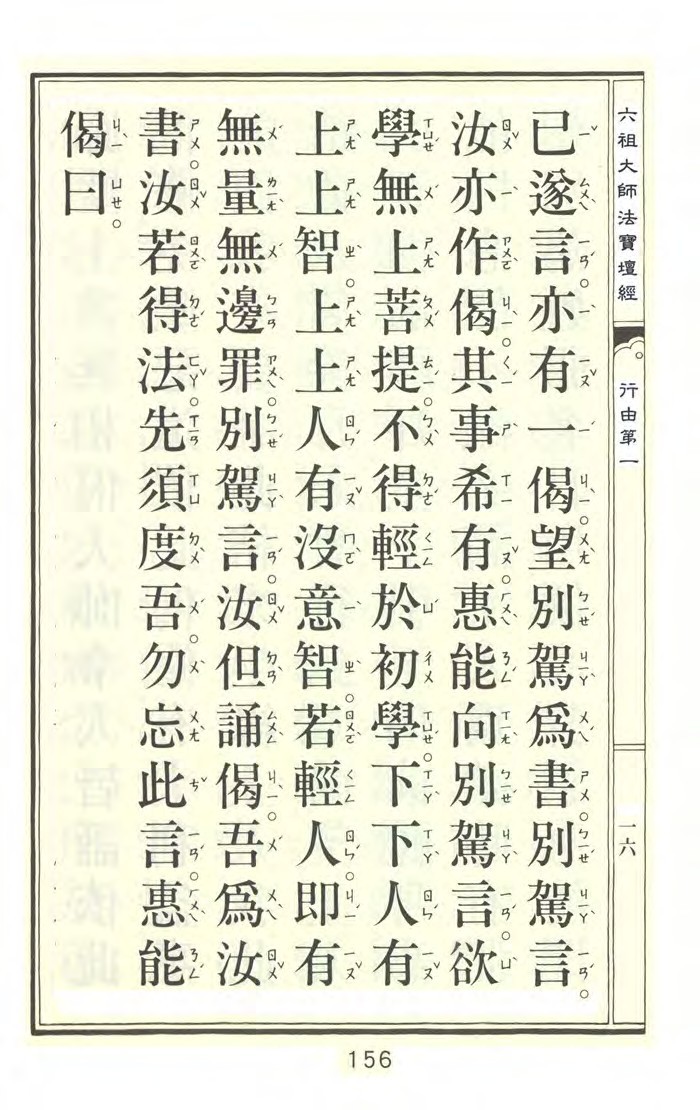 六祖大師法寶壇經 行由第一 一六
已遂言亦有一偈。望別駕為書。別駕言。
汝亦作偈。其事希有。惠能向別駕言。欲
學無上菩提。不得輕於初學。下下人有
上上智。上上人有沒意智。若輕人。即有
無量無邊罪。別駕言。汝但誦偈。吾為汝
書。汝若得法。先須度吾。勿忘此言。惠能
偈曰。
156